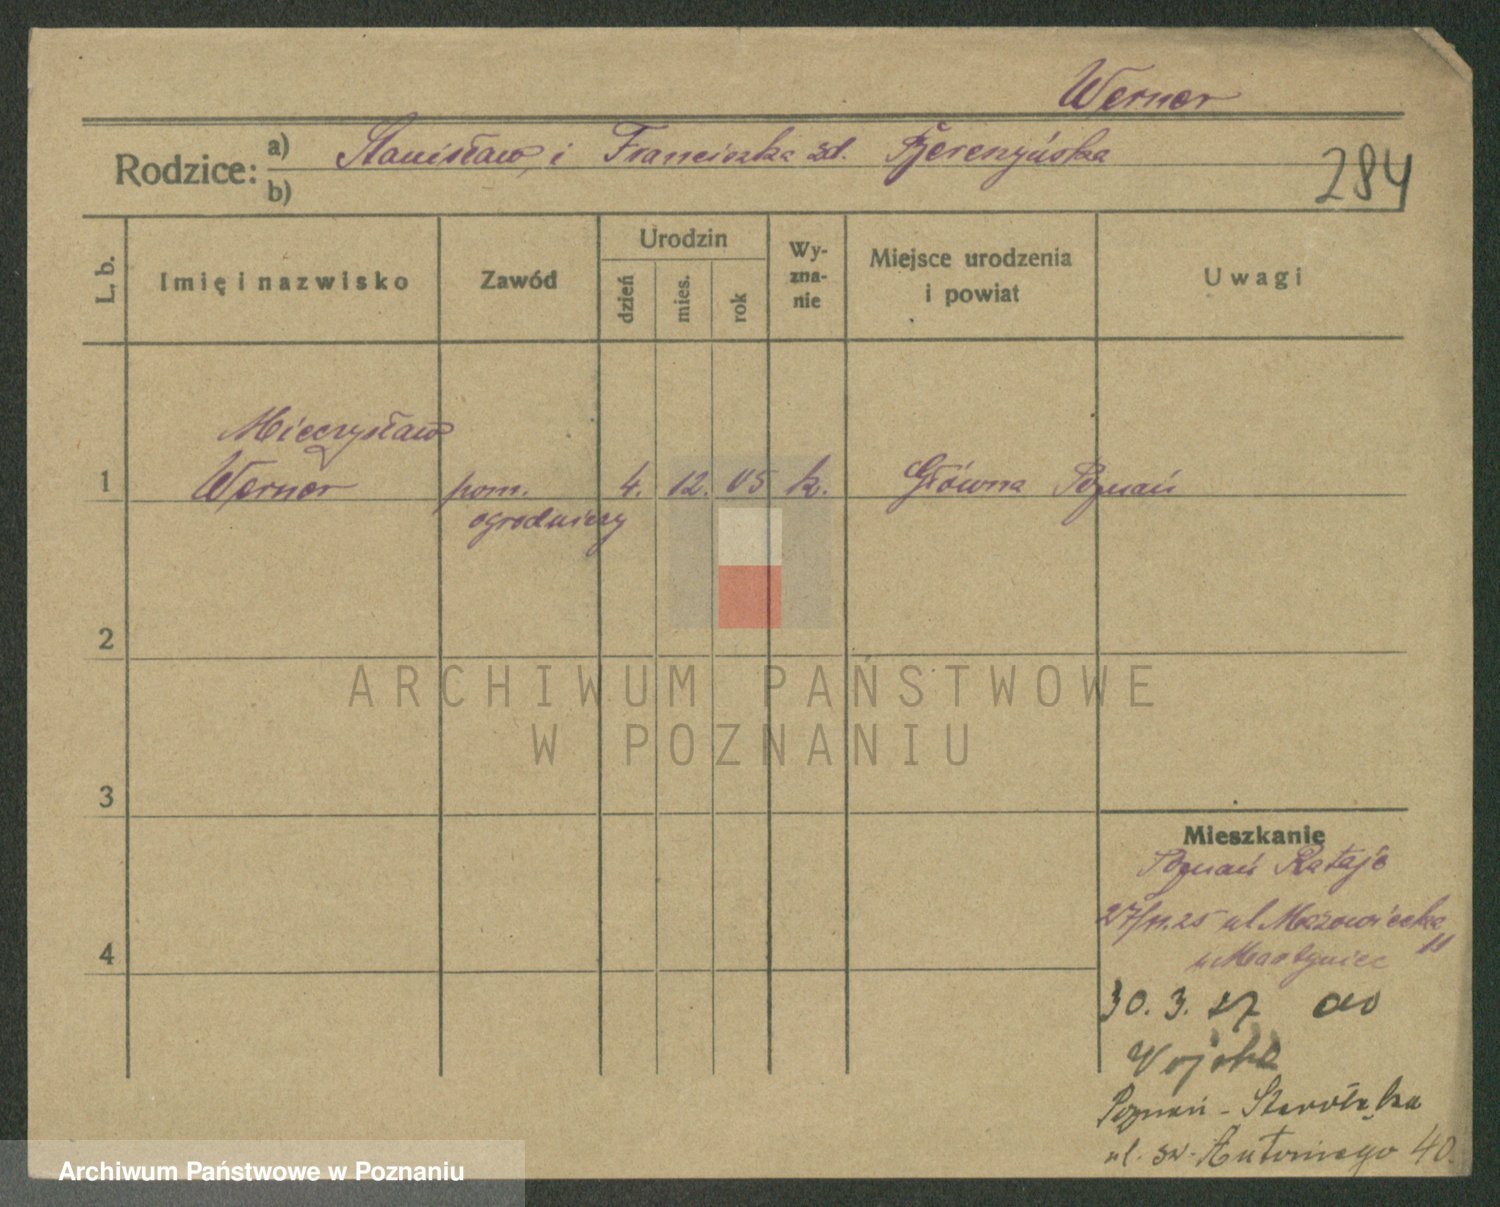 Werner
Rodzice: a) Stanisław, i Franciszka zd.
b)
284
L. b.
Imię i nazwisko
Zawód
Urodzin
dzień
mies.
rok
Wy-
zna-
nie
Miejsce urodzenia
i powiat
Uwagi
Mieczysław
1 Werner pom. 4. 12. 05 k. Główna Poznań
ogrodniczy
2
ARCHIWUM PAŃSTWOWE
W POZNANIU
3
4
Mieszkanie
Poznań Rataje
27/11.25 ul Mazowiecka
11
30.3.27 do
Wojska
Poznań - Starołęka
ul. św. Antoniego 40.
Archiwum Państwowe w Poznaniu